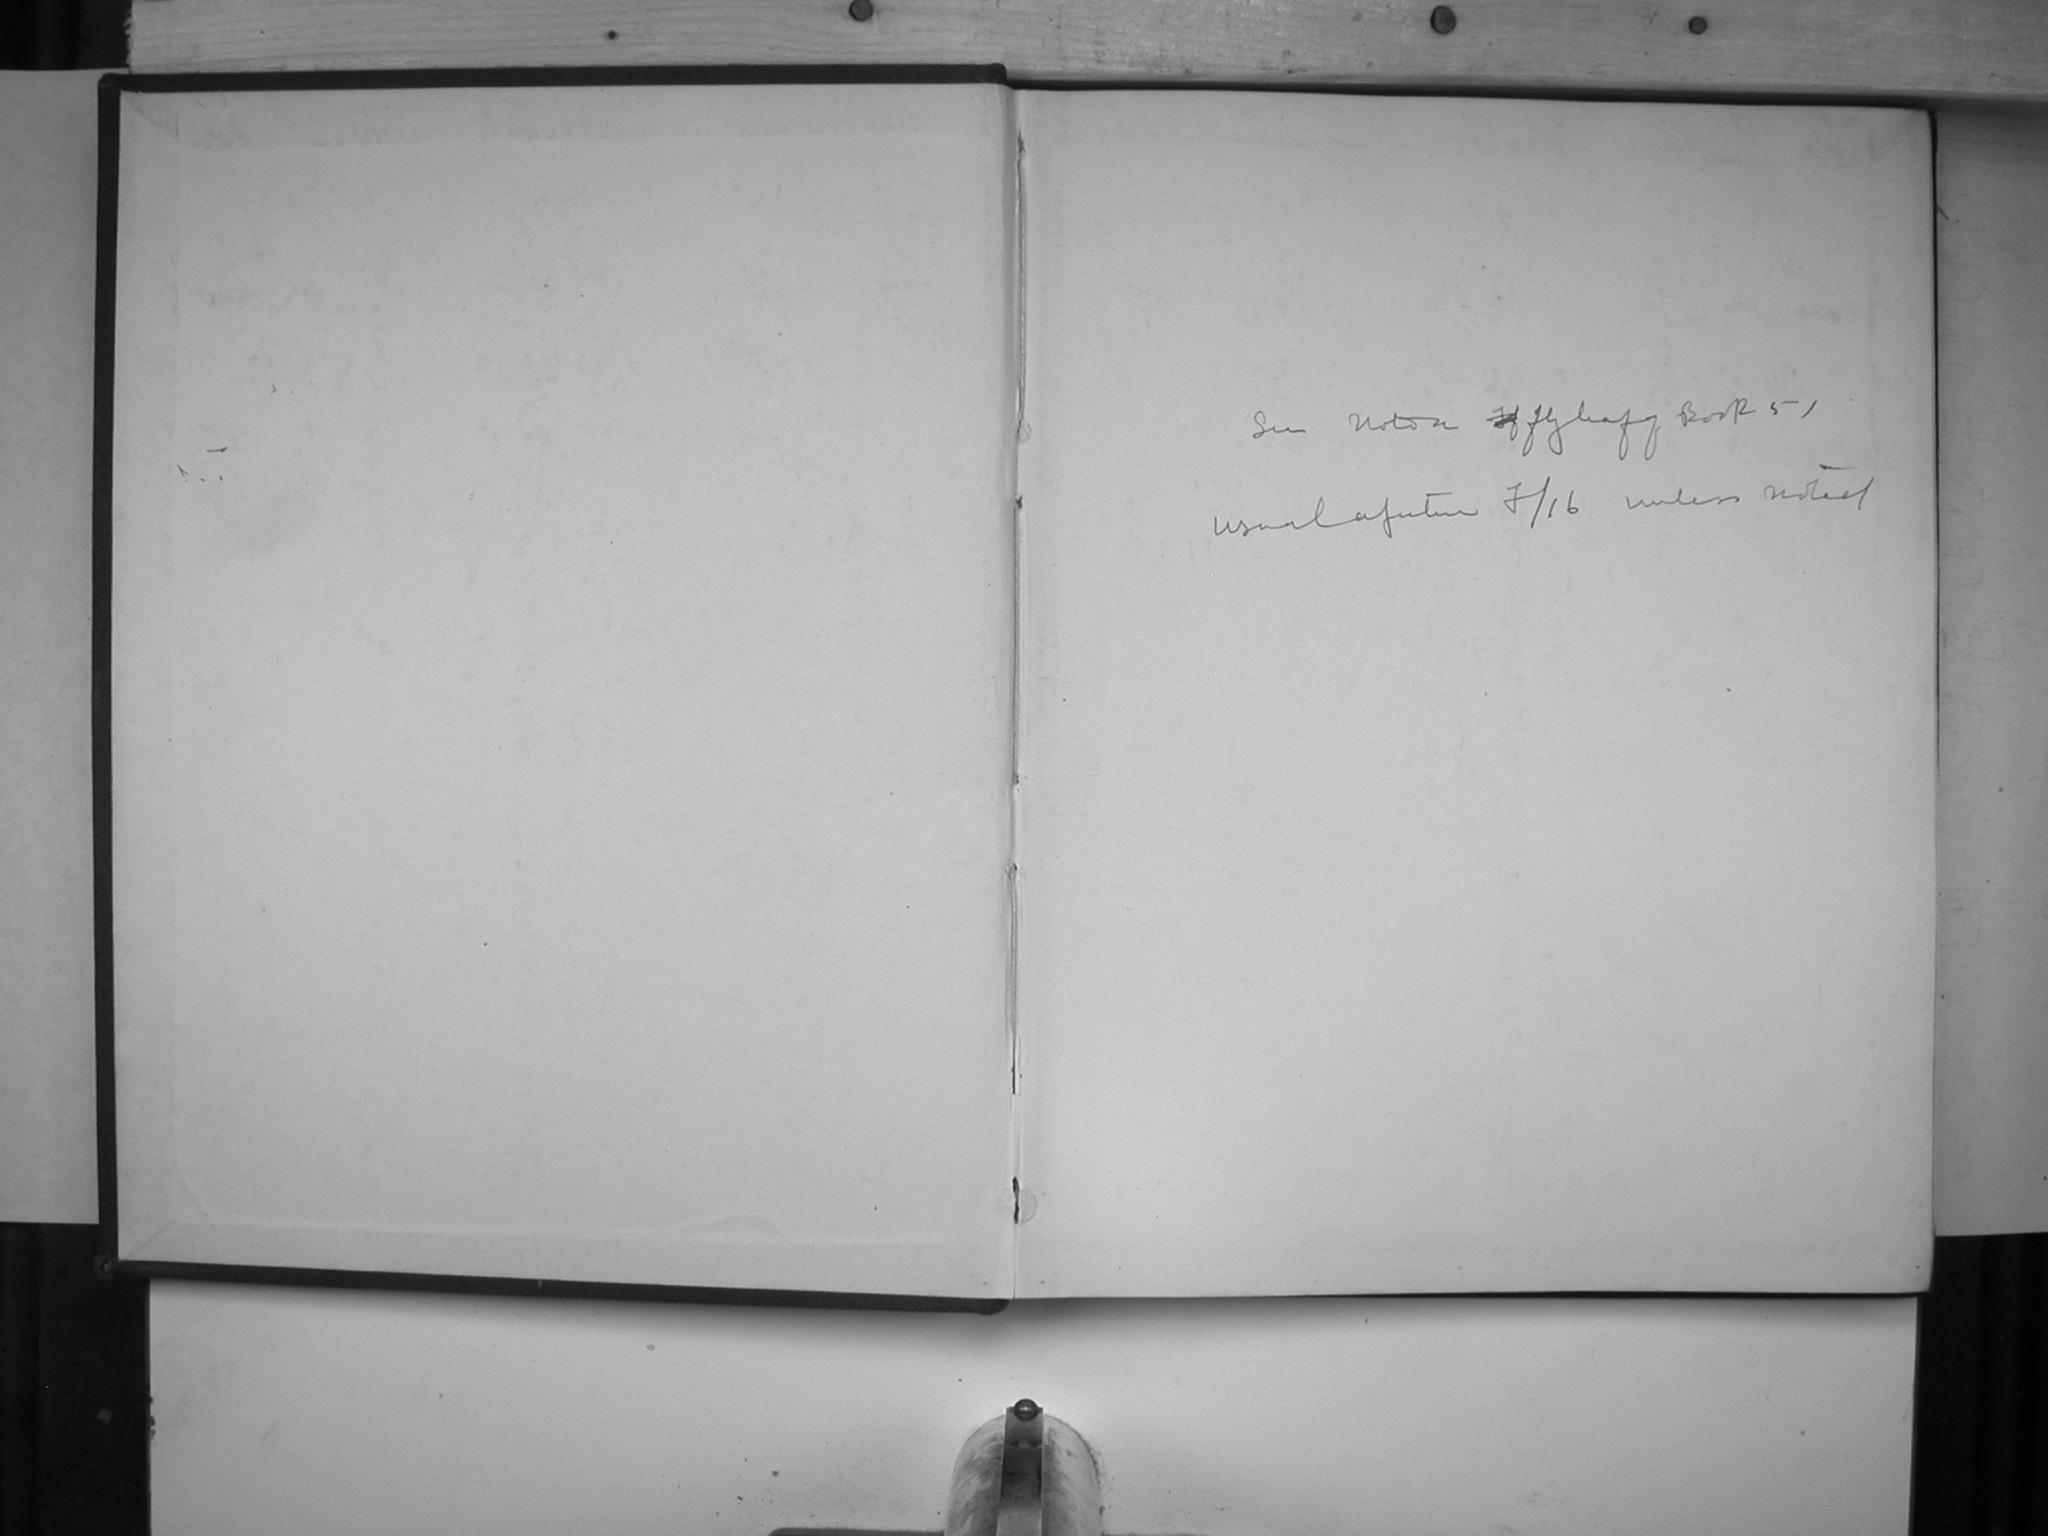 See Note on flyleaf of Book 51
usual aperture F/16 unless noted